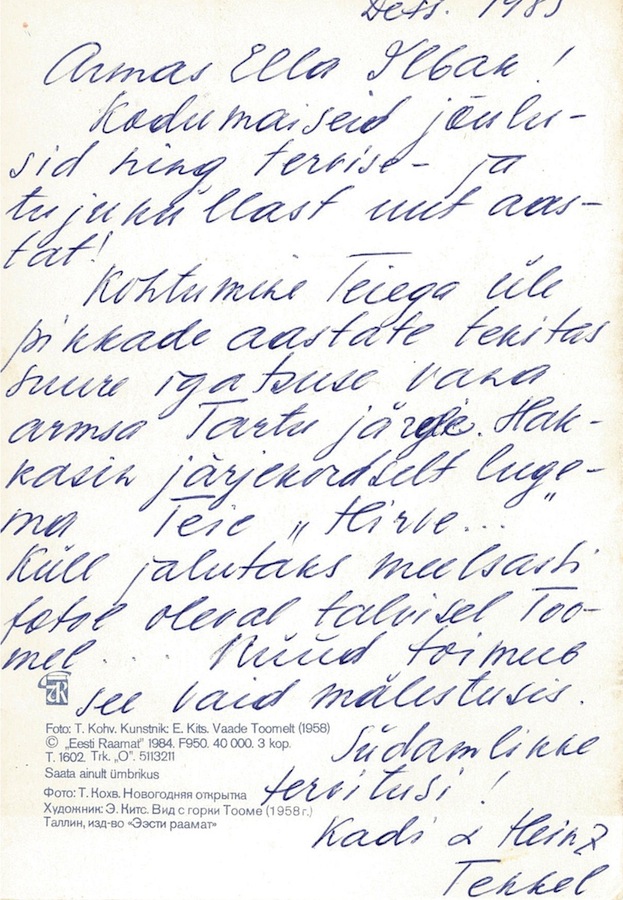 Dets. 1985
Armas Ella Ilbak!
Kodumaiseid jõulu-
sid ning tervise- ja
tujuküllast uut aas-
tat!
Kohtumine Teiega üle
pikkade aastate tekitas
suure igatsuse vana
armsa Tartu järele. Hak-
kasin järjekordselt luge-
ma Teie „Hirve..."
Küll jalutaks meelsasti
fotol oleval talvisel Too-
mel... Nüüd toimub
see vaid mälestusis.
Südamlikke
tervitusi!
Kadi & Heinz
Tekkel
Foto: T. Kohv. Kunstnik: E. Kits. Vaade Toomelt (1958)
© „Eesti Raamat" 1984. F950. 40 000. 3 kop.
T. 1602. Trk. „O". 5113211
Saata ainult ümbrikus
Фото: Т. Кохв. Новогодняя открытка
Художник: Э. Китс. Вид с горки Тооме (1958 г.)
Таллин, изд-во «Ээсти раамат»